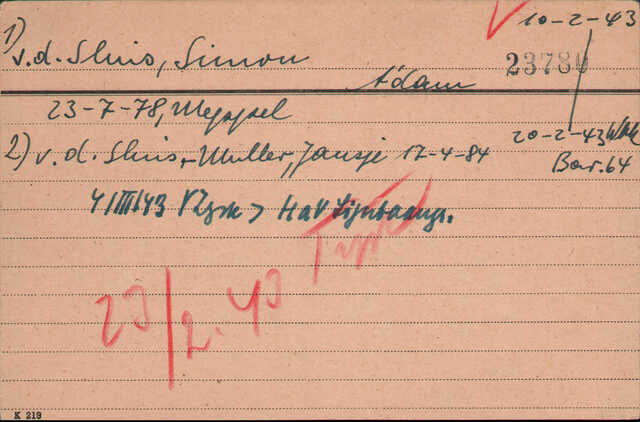 10-2-43
1) v.d. Sluis, Simon
23780
Adam
23-7-78, Meppel
20-2-43 Wbk
2) v.d. Sluis,-Muller, Jansje 17-4-84
Bar. 64
4/III/43 > HaV
Typh
23/2.43
K 219